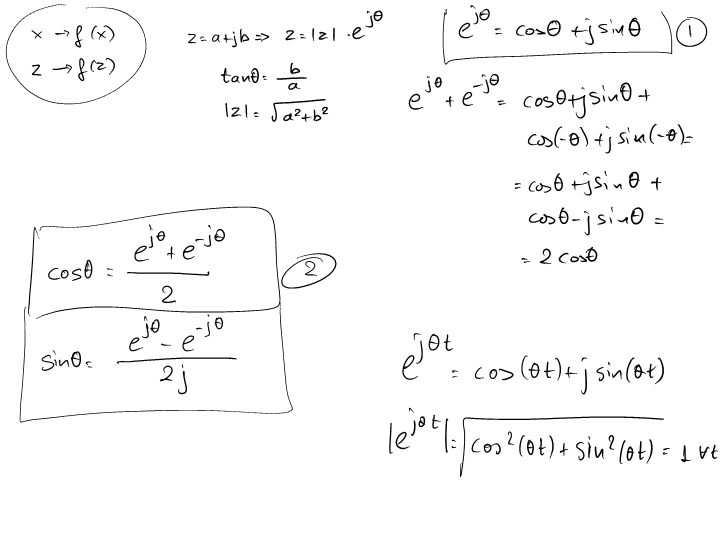 x → f(x)
z → f(z)
z = a+jb ⇒ z = |z| · e^{jθ}
tanθ = b/a
|z| = √(a²+b²)
e^{jθ} = cosθ + j sinθ ①
e^{jθ} + e^{-jθ} = cosθ + j sinθ +
cos(-θ) + j sin(-θ) =
= cosθ + j sinθ +
cosθ - j sinθ =
= 2 cosθ
cosθ = (e^{jθ} + e^{-jθ})/2 ②
sinθ = (e^{jθ} - e^{-jθ})/2j
e^{jθt} = cos(θt) + j sin(θt)
|e^{jθt}| = √(cos²(θt) + sin²(θt)) = 1 ∀t